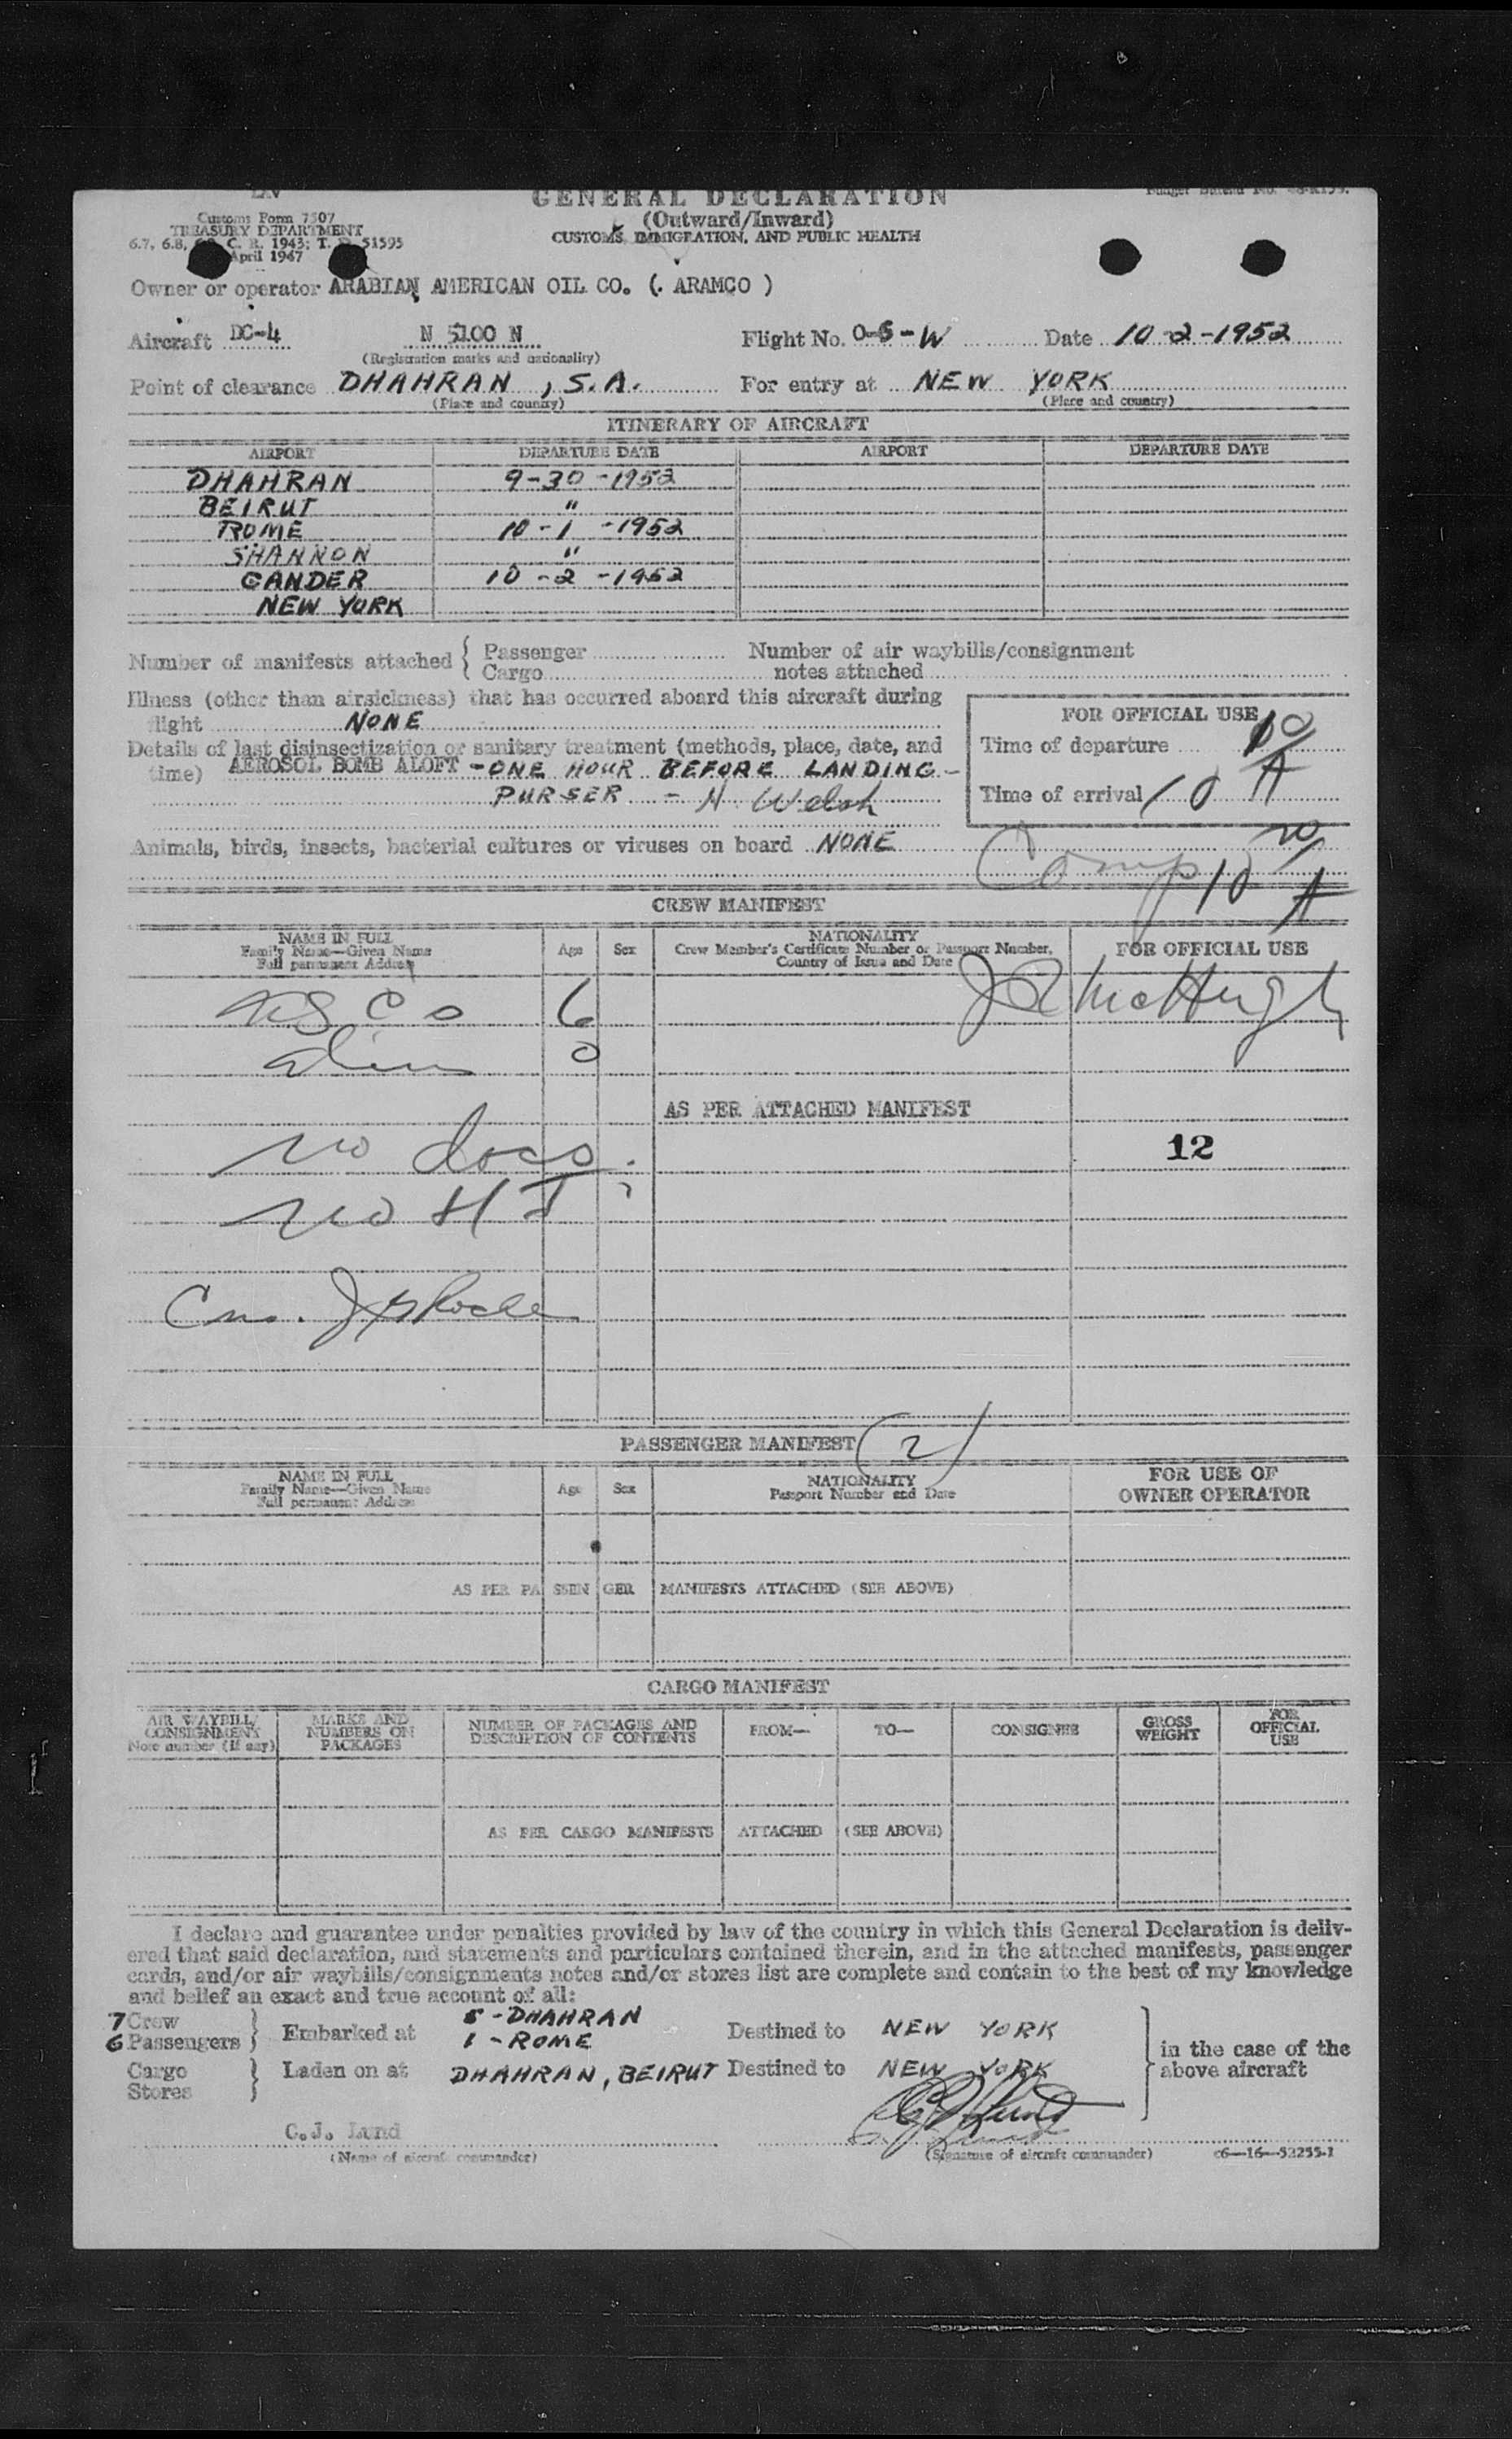 GENERAL DECLARATION
(Outward/Inward)
CUSTOMS, IMMIGRATION, AND PUBLIC HEALTH
Customs Form 7507
TREASURY DEPARTMENT
6.7, 6.8, C. R. 1943; T. D. 51595
April 1947
Owner or operator ARABIAN AMERICAN OIL CO. (. ARAMCO )
Aircraft DC-4 N 5100 N Flight No. Date 10-2-1952
(Registration marks and nationality)
Point of clearance DHAHRAN, S.A. For entry at NEW YORK
(Place and country) (Place and country)
ITINERARY OF AIRCRAFT
AIRPORT DEPARTURE DATE AIRPORT DEPARTURE DATE
DHAHRAN 9-30-1952
BEIRUT "
ROME 10-1-1952
SHANNON "
GANDER 10-2-1952
NEW YORK
Number of manifests attached { Passenger Number of air waybills/consignment
Cargo notes attached
Illness (other than airsickness) that has occurred aboard this aircraft during
flight NONE
FOR OFFICIAL USE
Details of last disinsectization or sanitary treatment (methods, place, date, and
time) AEROSOL BOMB ALOFT - ONE HOUR BEFORE LANDING -
PURSER - N. Welsh
Time of departure
Time of arrival
Animals, birds, insects, bacterial cultures or viruses on board NONE
Comp 10 20/A
CREW MANIFEST
NAME IN FULL
Family Name—Given Name
Full permanent Address
Age Sex
NATIONALITY
Crew Member's Certificate Number or Passport Number,
Country of Issue and Date
FOR OFFICIAL USE
6
0
AS PER ATTACHED MANIFEST
no docs.
12
PASSENGER MANIFEST (2)
NAME IN FULL
Family Name—Given Name
Full permanent Address
Age Sex
NATIONALITY
Passport Number and Date
FOR USE OF
OWNER OPERATOR
AS PER PASSENGER MANIFESTS ATTACHED (SEE ABOVE)
CARGO MANIFEST
AIR WAYBILL/
CONSIGNMENT
Note number (if any)
MARKS AND
NUMBERS ON
PACKAGES
NUMBER OF PACKAGES AND
DESCRIPTION OF CONTENTS
FROM— TO— CONSIGNEE
GROSS
WEIGHT
FOR
OFFICIAL
USE
AS PER CARGO MANIFESTS ATTACHED (SEE ABOVE)
I declare and guarantee under penalties provided by law of the country in which this General Declaration is deliv-
ered that said declaration, and statements and particulars contained therein, and in the attached manifests, passenger
cards, and/or air waybills/consignments notes and/or stores list are complete and contain to the best of my knowledge
and belief an exact and true account of all:
7 Crew 5 - DHAHRAN
6 Passengers } Embarked at 1 - ROME Destined to NEW YORK
in the case of the
above aircraft
Cargo } Laden on at DHAHRAN, BEIRUT Destined to NEW YORK
Stores
C.J. Lund C. J. Lund
(Name of aircraft commander) (Signature of aircraft commander) c6—16—53255-1